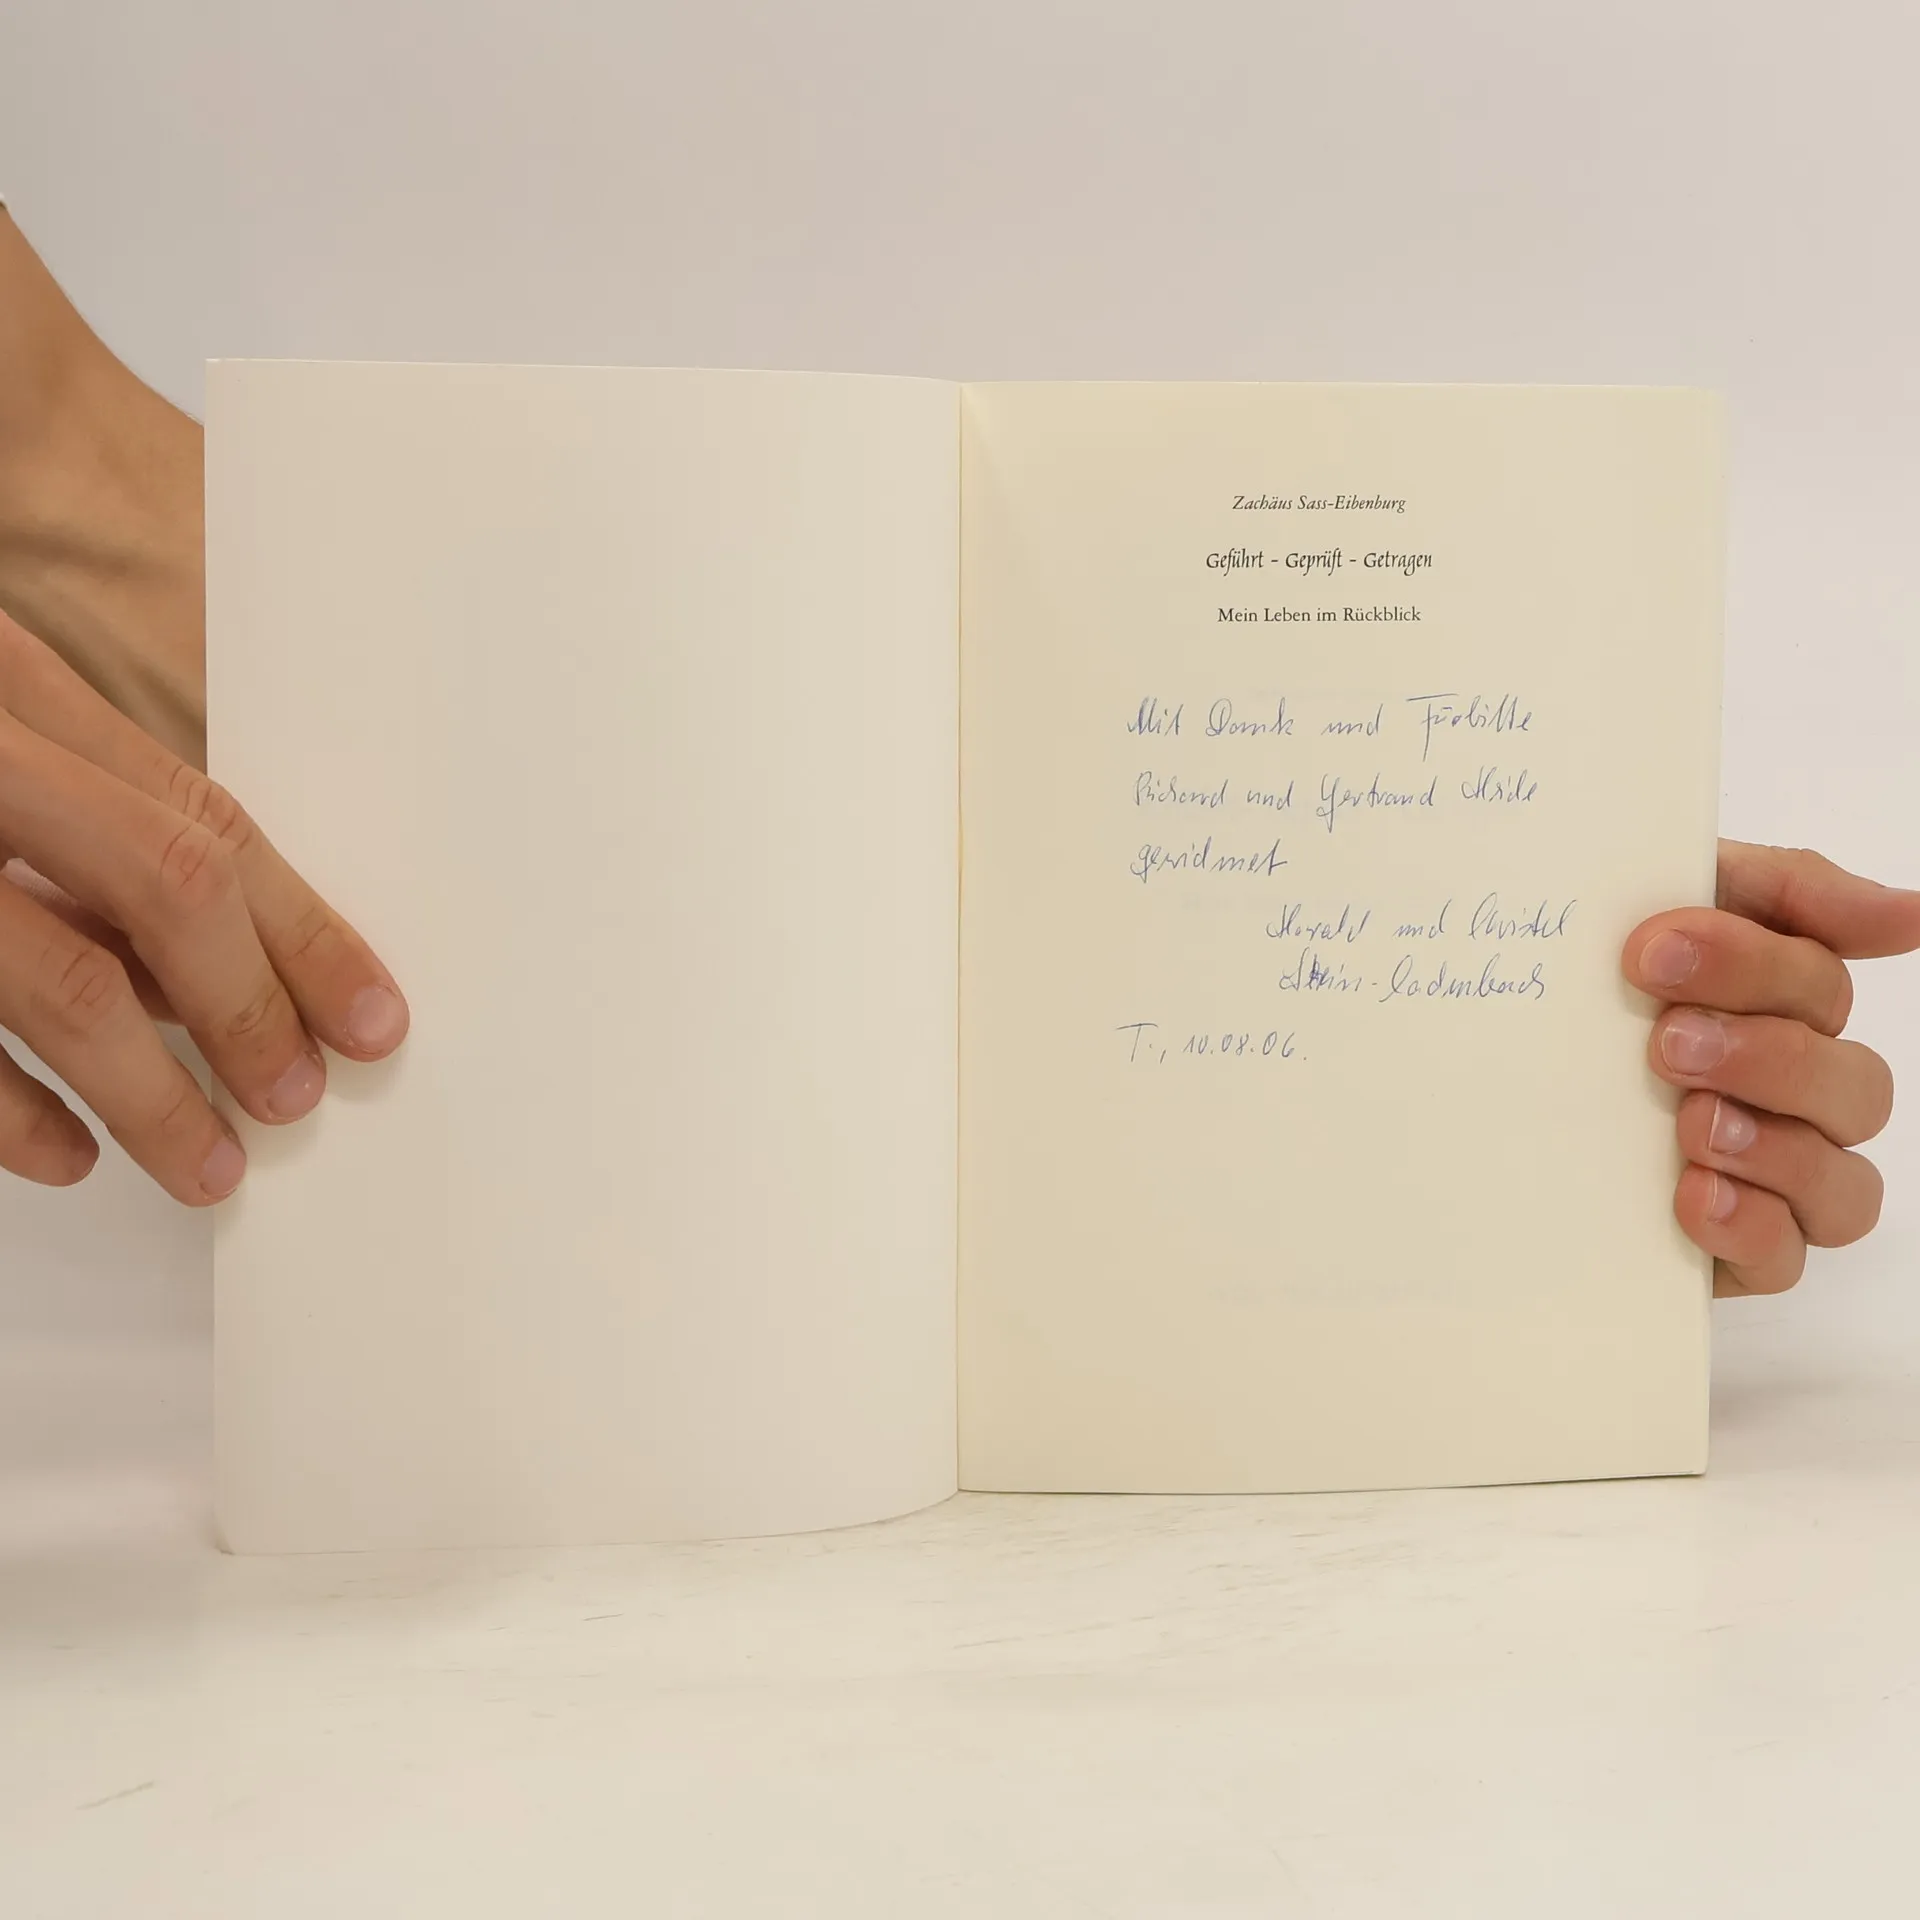 Zachäus Sass-Eibenburg
Geführt - Geprüft - Getragen
Mein Leben im Rückblick
Mit Dank und Fürbitte
Richard und Gertraud
gewidmet
Harald und Christel
T., 10.08.06.